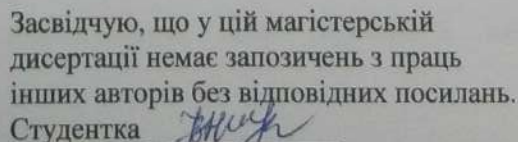 Засвідчую, що у цій магістерській
дисертації немає запозичень з праць
інших авторів без відповідних посилань.
Студентка